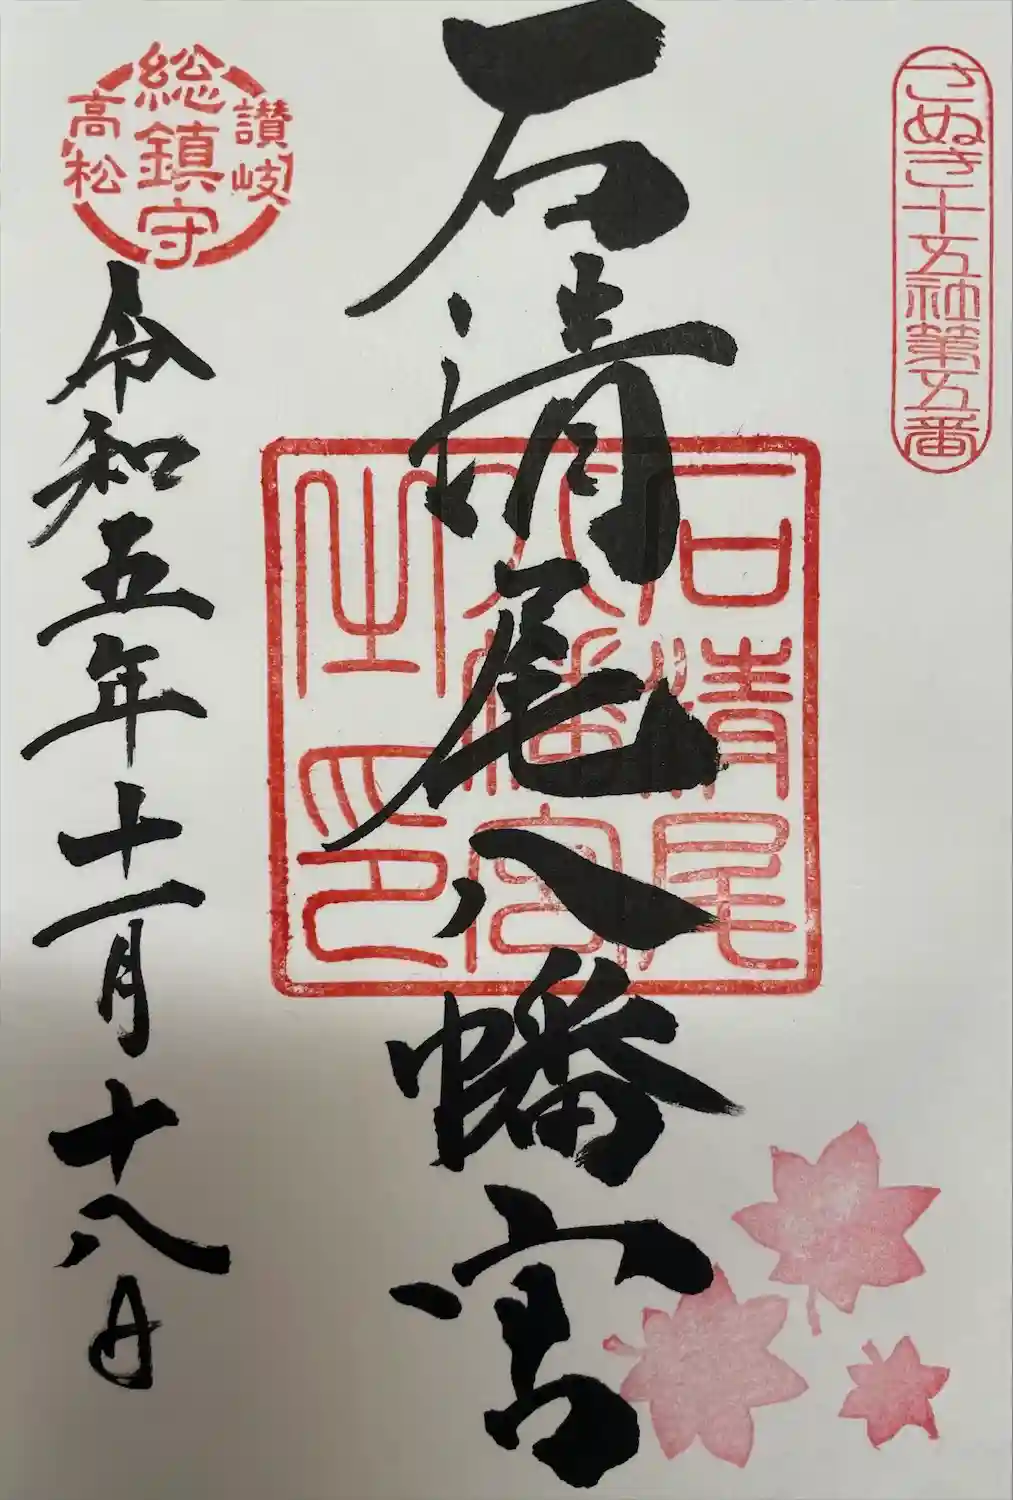 さぬき十五社第五番
石清尾八幡宮
石清尾
八幡宮
之印
讃岐
総鎮守
高松
令和五年十一月十八日